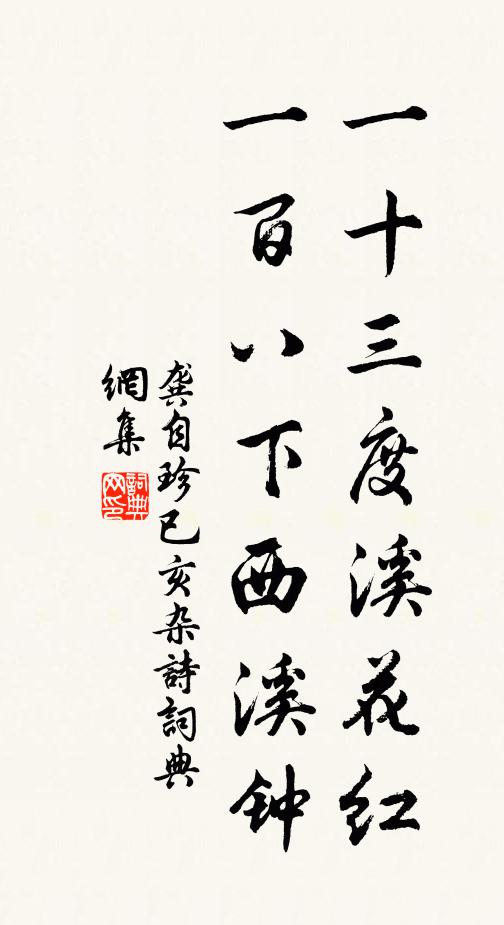 一十三度溪花红
一百八下西溪钟
龔自珍己亥杂詩詞典
網集
詞典
网印